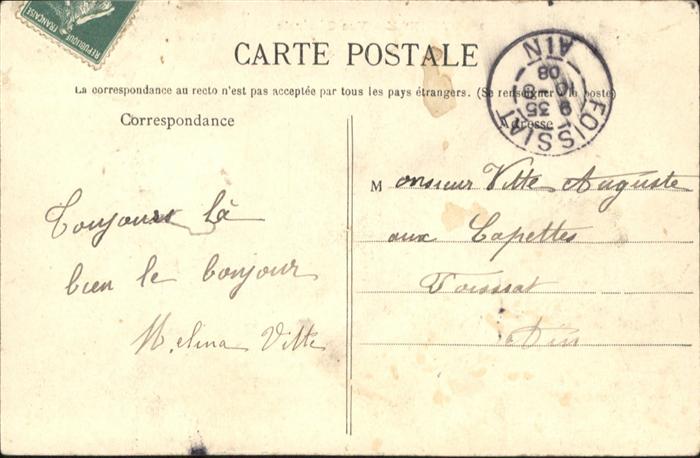 REPUBLIQUE FRANÇAISE
CARTE POSTALE
La correspondance au recto n'est pas acceptée par tous les pays étrangers. (Se renseigner à la poste)
Correspondance
Adresse
FOISSIAT
AIN
9 35
10 - 8
08
Toujours là
bien le bonjour
Mélina Vitte
Monsieur Vitte Auguste
aux Capettes
Foissiat
Ain